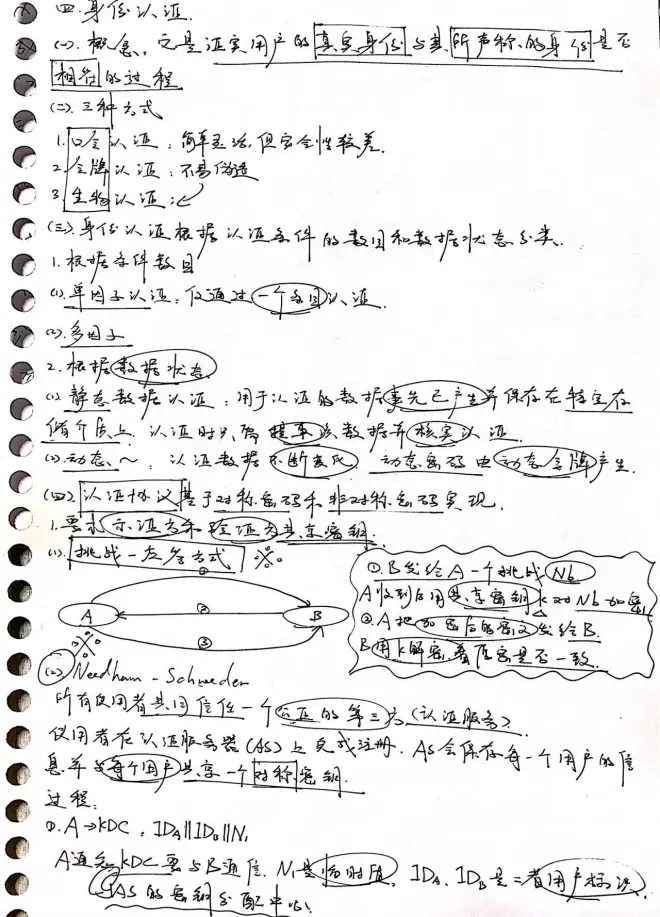 四.身份认证.
(一).概念,它是证实用户的真实身份与其所声称的身份是否
相符的过程
(二).三种方式
1.口令认证:简单灵活,但安全性较差.
2.令牌认证:不易伪造
3.生物认证:
(三).身份认证根据认证条件的数目和数据状态分类.
1.根据条件数目
(1).单因子认证,仅通过一个条件认证.
(2).多因子
2.根据数据状态
(1)静态数据认证:用于认证的数据事先已产生并保存在特定存
储介质上,认证时只需提取该数据并核实认证.
(2).动态~:认证数据不断变化,动态密码由动态令牌产生.
(四).认证协议基于对称密码和非对称密码实现.
1.要求示证方和验证方共享密钥.
(1).挑战-应答方式
①
A ② B
③
①.B发给A一个挑战Nb
A收到后用共享密钥k对Nb加密
②A把加密后的密文发给B.
B用k解密,看Nb是否一致.
(2)Needham-Schroeder
所有使用者共同信任一个公正的第三方(认证服务).
使用者在认证服务器(AS)上完成注册.AS会保存每一个用户的信
息并与每个用户共享一个对称密钥.
过程:
①.A→KDC:IDA||IDB||N1
A通知KDC要与B通信.N1是临时值,IDA、IDB是二者用户标识
AS的密钥分配中心